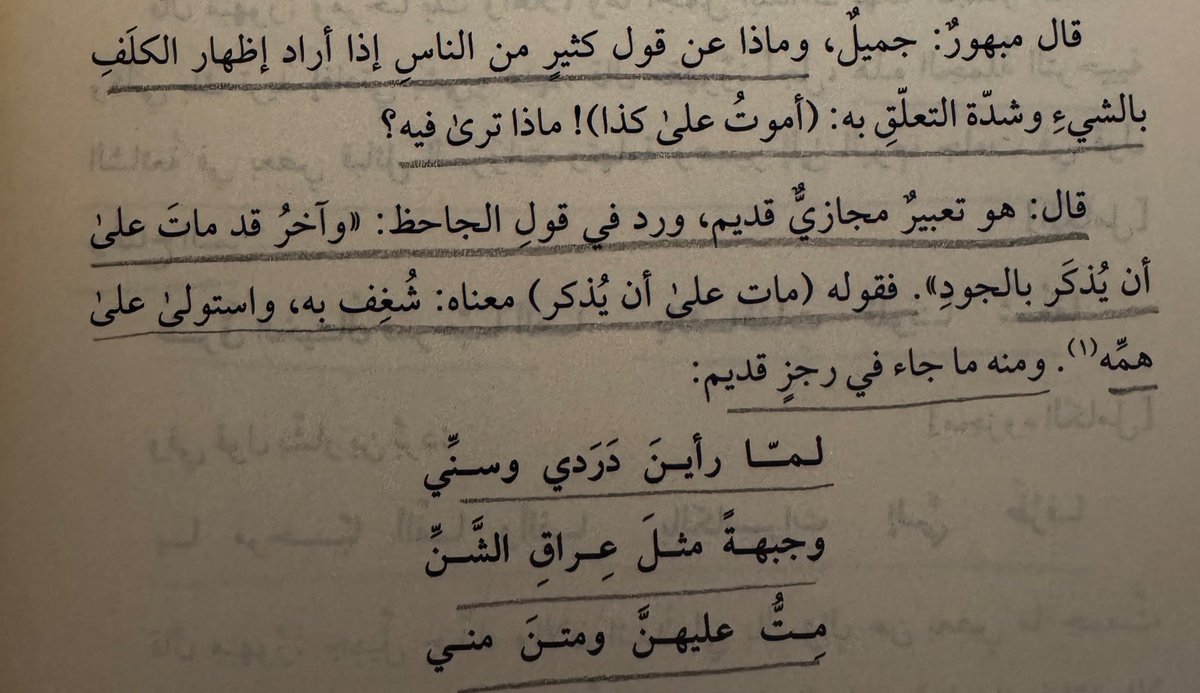 قال مبهورٌ: جميلٌ، وماذا عن قول كثيرٍ من الناسِ إذا أراد إظهار الكلَفِ
بالشيءِ وشدّة التعلّقِ به: (أموتُ علىٰ كذا)! ماذا ترىٰ فيه؟
قال: هو تعبيرٌ مجازيٌّ قديم، ورد في قولِ الجاحظ: «وآخرُ قد ماتَ علىٰ
أن يُذكَر بالجودِ». فقوله (مات علىٰ أن يُذكر) معناه: شُغِف به، واستولىٰ علىٰ
همِّه(١). ومنه ما جاء في رجزٍ قديم:
لـمـّـا رأيـنَ دَرَدي وسـنِّي
وجبهـةً مثـلَ عِـراقِ الشَّـنِّ
مِـتُّ عليهـنَّ ومتـنَ منـي